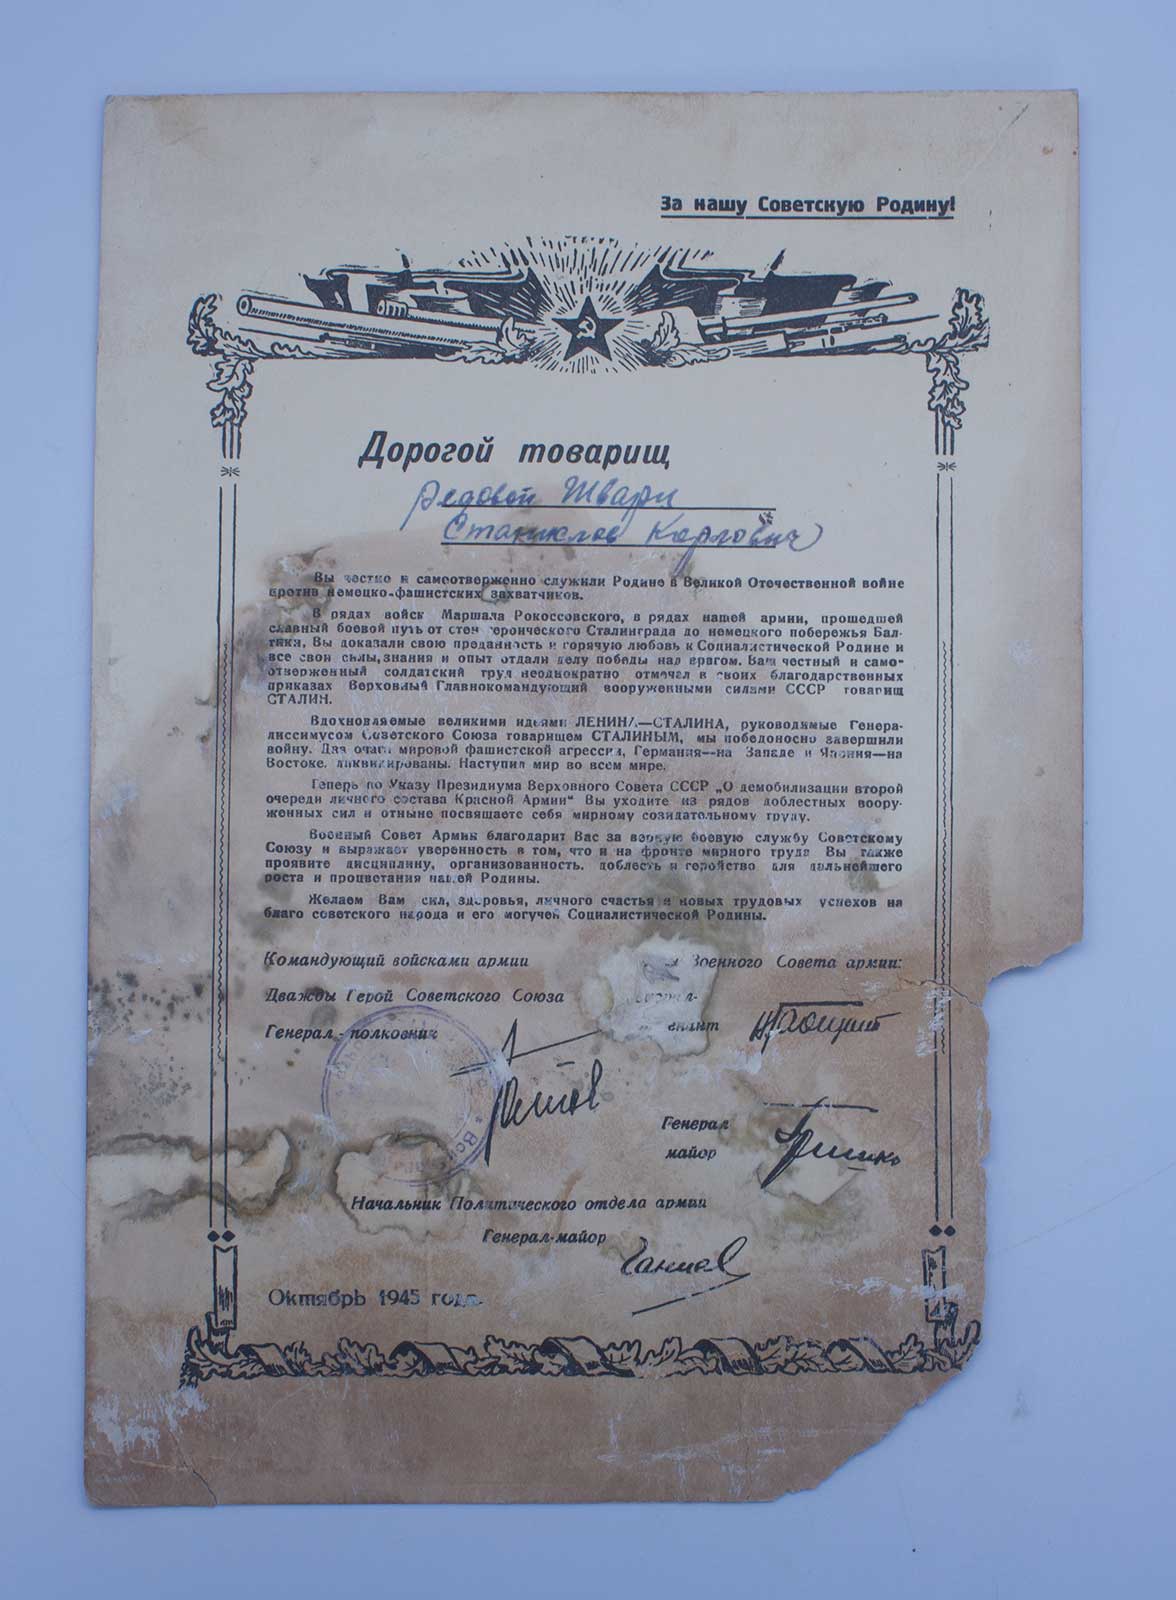 За нашу Советскую Родину!
Дорогой товарищ
рядовой Шварц
Станислав Карлович
Вы честно и самоотверженно служили Родине в Великой Отечественной войне
против немецко-фашистских захватчиков.
В рядах войск Маршала Рокоссовского, в рядах нашей армии, прошедшей
славный боевой путь от стен героического Сталинграда до немецкого побережья Бал-
тики, Вы доказали свою преданность и горячую любовь к Социалистической Родине и
все свои силы, знания и опыт отдали делу победы над врагом. Ваш честный и само-
отверженный солдатский труд неоднократно отмечал в своих благодарственных
приказах Верховный Главнокомандующий вооруженными силами СССР товарищ
СТАЛИН.
Вдохновляемые великими идеями ЛЕНИНА—СТАЛИНА, руководимые Генера-
лиссимусом Советского Союза товарищем СТАЛИНЫМ, мы победоносно завершили
войну. Два очага мировой фашистской агрессии, Германия—на Западе и Япония—на
Востоке, ликвидированы. Наступил мир во всем мире.
Теперь по Указу Президиума Верховного Совета СССР „О демобилизации второй
очереди личного состава Красной Армии" Вы уходите из рядов доблестных воору-
женных сил и отныне посвящаете себя мирному созидательному труду.
Военный Совет Армии благодарит Вас за верную боевую службу Советскому
Союзу и выражает уверенность в том, что и на фронте мирного труда Вы также
проявите дисциплину, организованность, доблесть и геройство для дальнейшего
роста и процветания нашей Родины.
Желаем Вам сил, здоровья, личного счастья и новых трудовых успехов на
благо советского народа и его могучей Социалистической Родины.
Командующий войсками армии
Военного Совета армии:
Дважды Герой Советского Союза
Генерал-полковник
Генерал
майор
Начальник Политического отдела армии
Генерал-майор
Октябрь 1945 года.